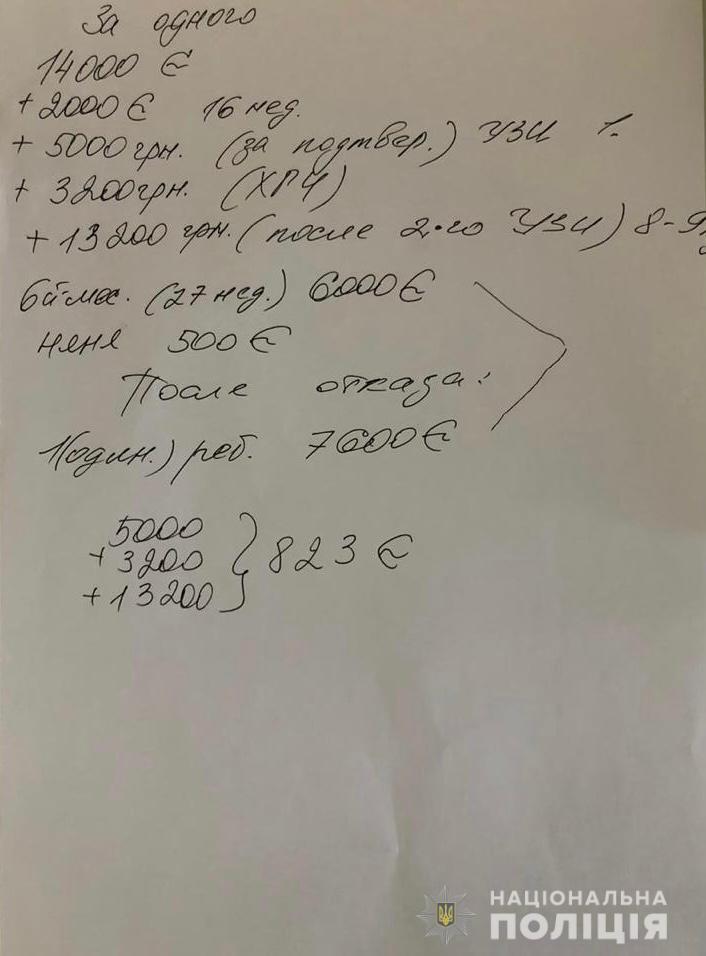 За одного
14000 €
+2000 € 16 нед.
+ 5000 грн. (за подтвер.) УЗИ 1.
+ 3200 грн. (ХГЧ)
+ 13 200 грн. (после 2-го УЗИ) 8-9
6й мес. (27 нед.) 6000 €
няня 500 €
После отказа:
1(один.) реб. 7600 €
5000
+ 3200
+ 13200
823 €
НАЦІОНАЛЬНА
ПОЛІЦІЯ